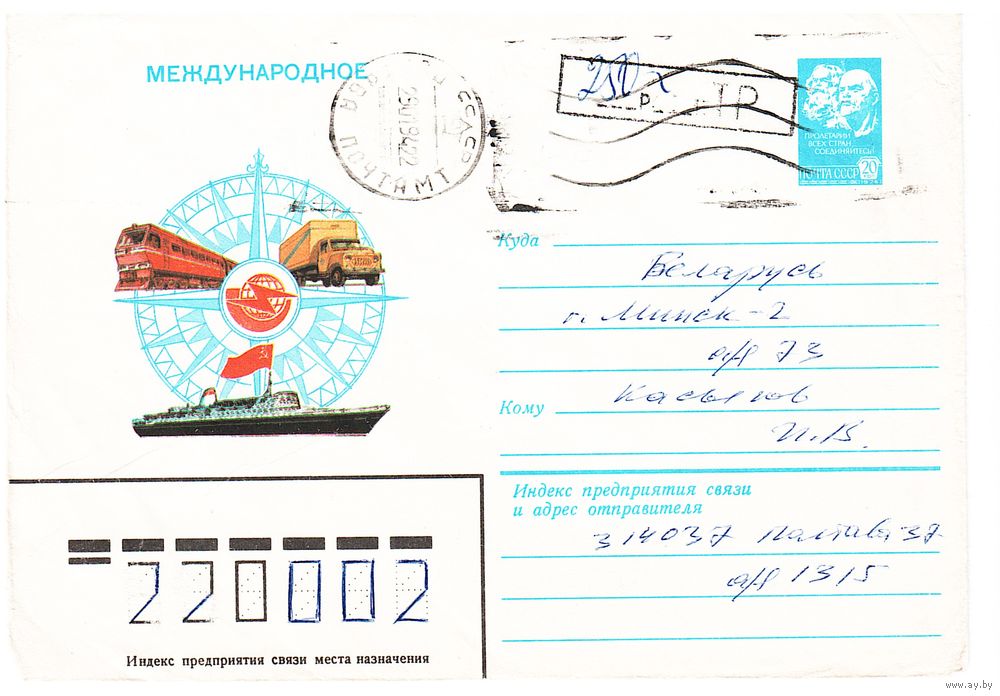 МЕЖДУНАРОДНОЕ
СССР
ПОЧТАМТ
250
р. ТР
ПРОЛЕТАРИИ
ВСЕХ СТРАН,
СОЕДИНЯЙТЕСЬ!
ПОЧТА СССР 20
Куда
Беларусь
г. Минск-2
а/я 73
Касьянов
Кому
И.В.
Индекс предприятия связи
и адрес отправителя
314037 Полтава 37
а/я 1315
220002
Индекс предприятия связи места назначения
www.ay.by